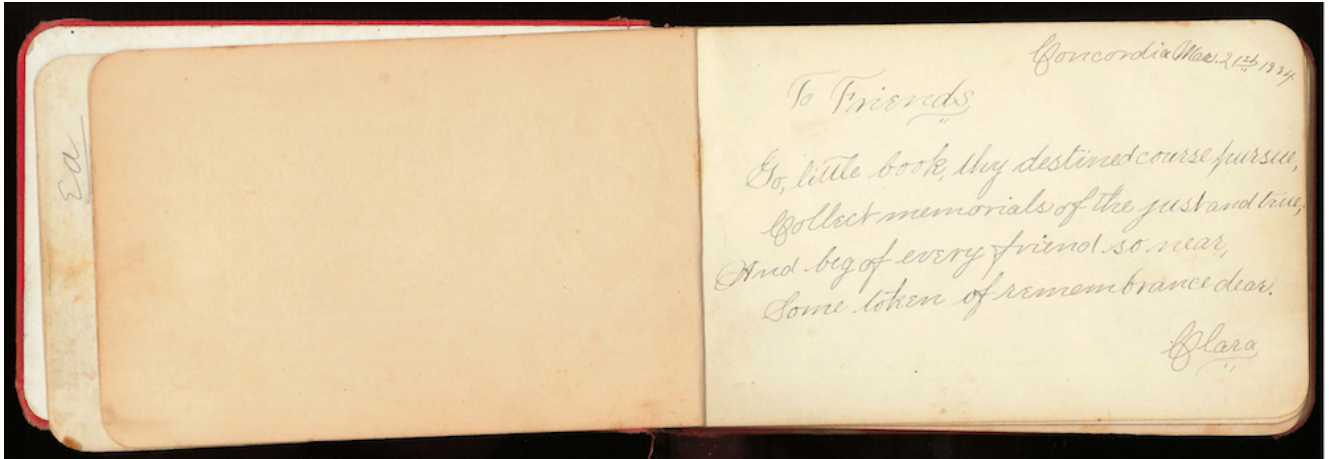 Ed
Concordia Mar. 21st 1884
To Friends
Go, little book, thy destined course pursue,
Collect memorials of the just and true,
And beg of every friend so near,
Some token of remembrance dear.
Clara